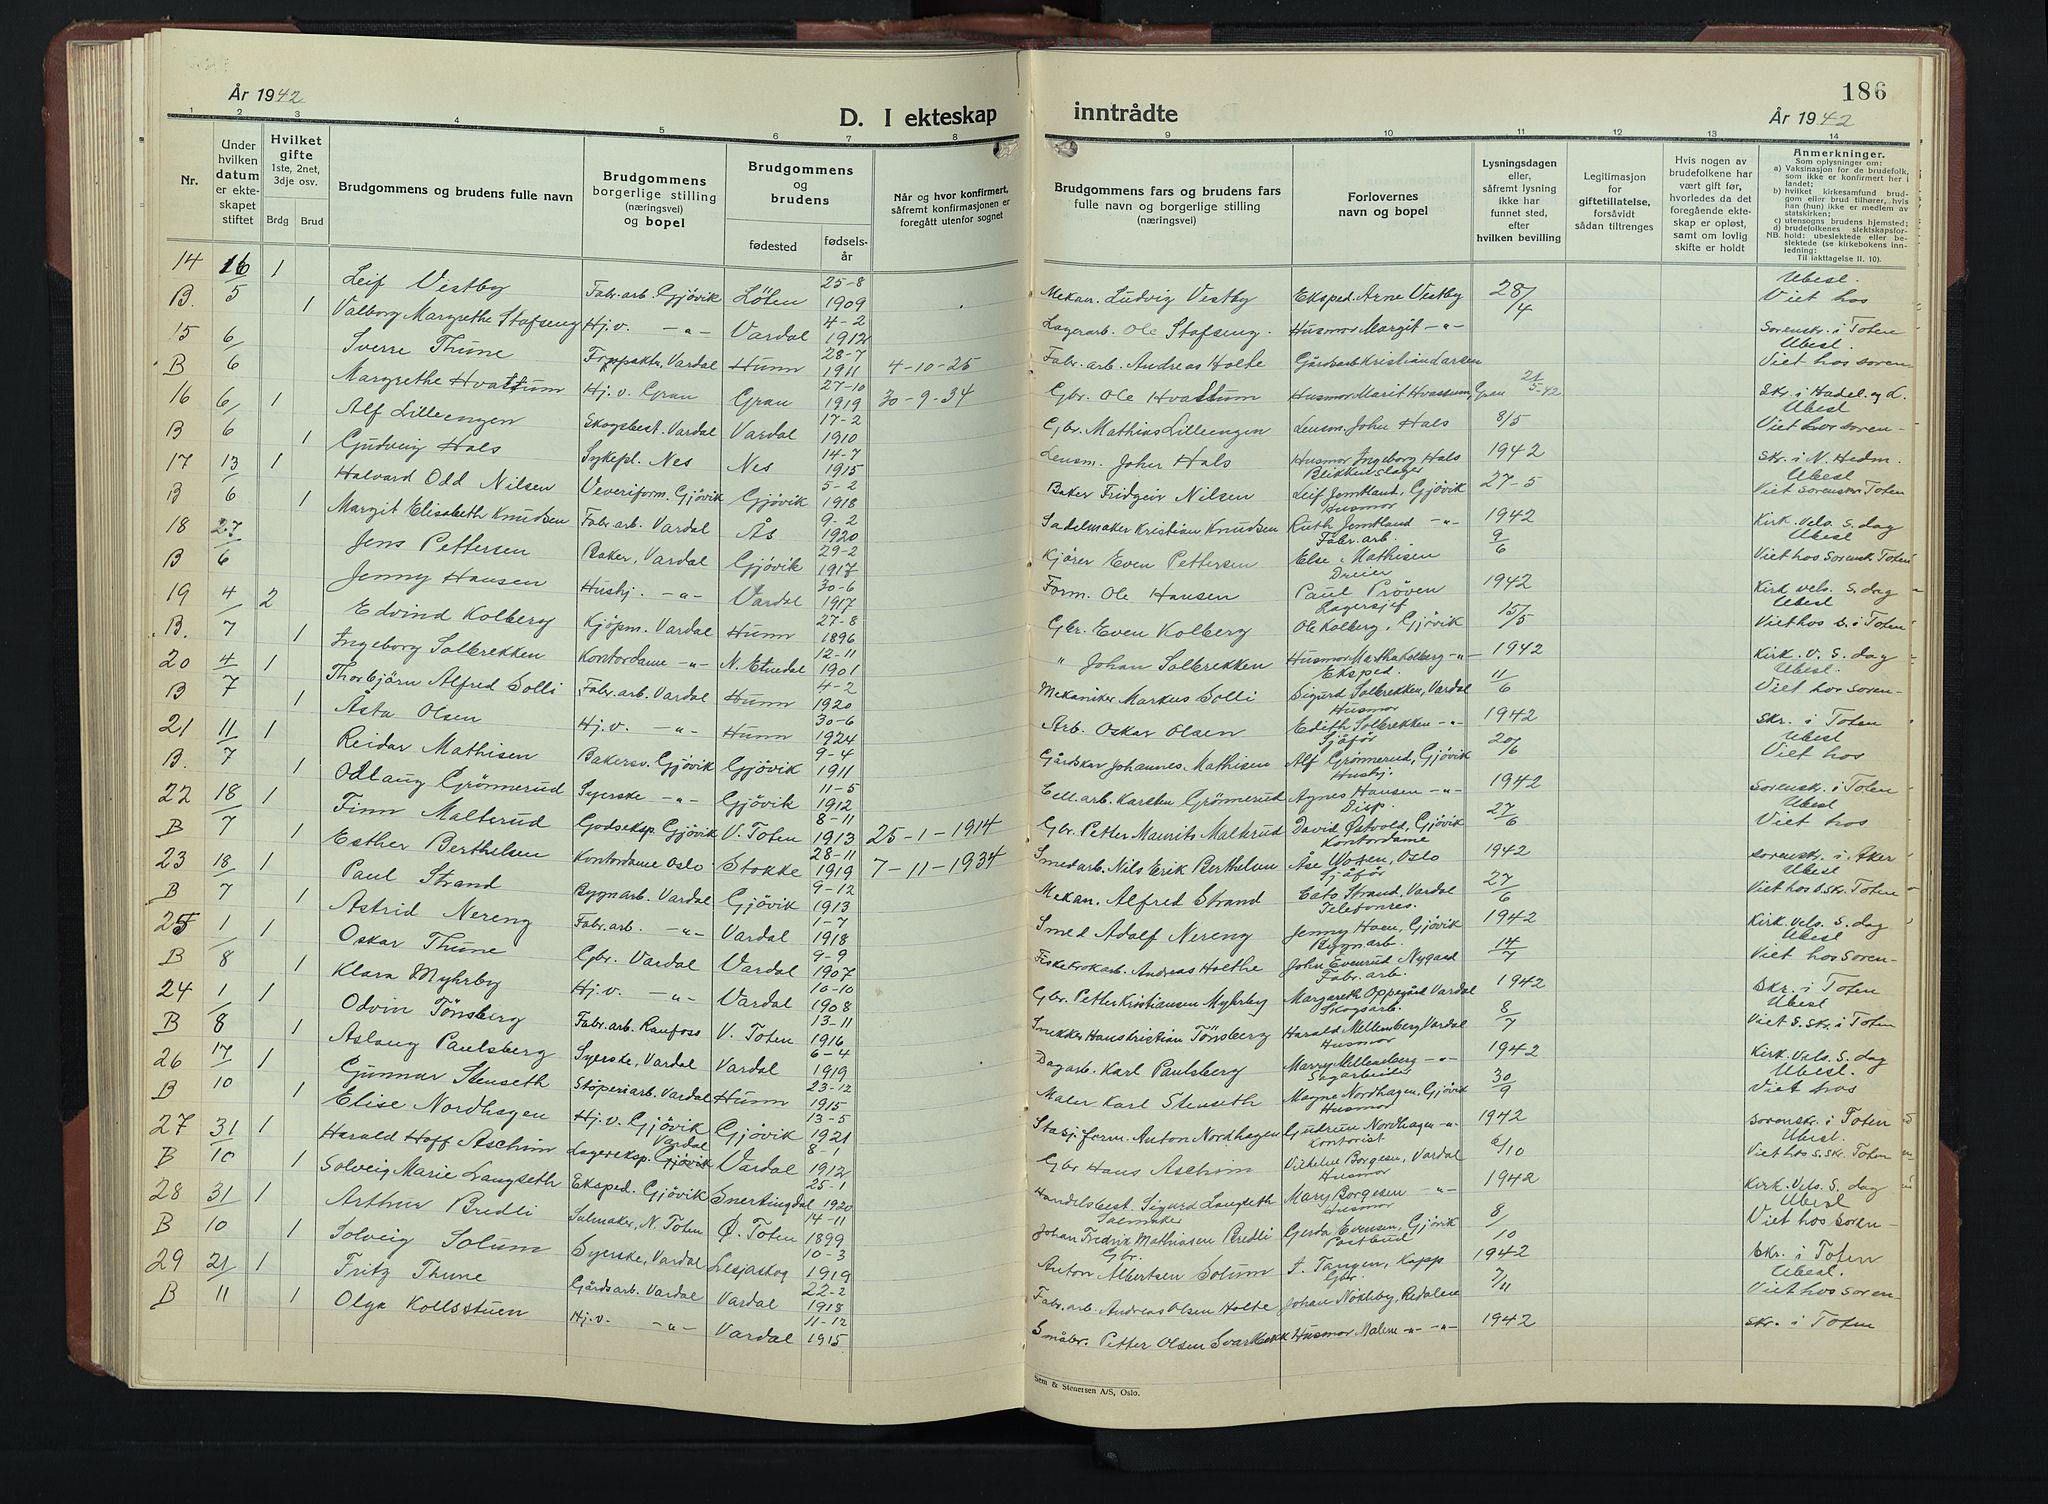 År 1942
D. I ekteskap
inntrådte
186
År 1942
1 2 3 4 5 6 7 8 9 10 11 12 13 14
Nr.
Under hvilken datum er ekteskapet stiftet
Hvilket gifte
1ste, 2net, 3dje osv.
Brdg Brud
Brudgommens og brudens fulle navn
Brudgommens borgerlige stilling (næringsvei) og bopel
Brudgommens og brudens
fødested
fødselsår
Når og hvor konfirmert, såfremt konfirmasjonen er foregått utenfor sognet
Brudgommens fars og brudens fars fulle navn og borgerlige stilling (næringsvei)
Forlovernes navn og bopel
Lysningsdagen eller, såfremt lysning ikke har funnet sted, efter hvilken bevilling
Legitimasjon for giftetillatelse, forsåvidt sådan tiltrenges
Hvis nogen av brudefolkene har vært gift før, hvorledes da det foregående ekteskap er opløst, samt om lovlig skifte er holdt
Anmerkninger.
Som oplysninger om:
a) Vaksinasjon for de brudefolk, som ikke er konfirmert her i landet;
b) hvilket kirkesamfund brudgom eller brud tilhører, hvis han (hun) ikke er medlem av statskirken;
c) utensogns brudens hjemsted;
d) brudefolkenes slektskapsforhold: ubeslektede eller beslektede (se kirkebokens innledning: Til iakttagelse II. 10).
NB.
14 16/5 1 Leif Vestby Fabr.arb. Gjövik Löten 25-8 1909 Mekan. Ludvig Vestby Eksped. Arne Vestby 28/4 Ubesl. Viet hos
B. 1 Valborg Margrethe Stafseng Hj.v. -"- Vardal 4-2 1912 Lagerarb. Ole Stafseng. Husmor Margit -"- sorenskr. i Toten
15 6/6 Sverre Thune Vardal Hunn 28-7 1911 4-10-25 Fabr. arb. Andreas Holte Ubesl. Viet hos soren
B Margrethe Hvattum Hj.v. Gran Gran 27-10 1919 30-9-34 Gbr. Ole Hvattum Husmor Marit Hvattum, Gran 21/5-42 skr. i Hadel. og L.
16 6/6 1 Alf Lilleengen Skogsbest. Vardal Vardal 17-2 1910 Gbr. Mathias Lilleengen Lensm. John Hals 8/5 Ubesl Viet hos soren-
B 1 Gudveig Hals Sykepl. Nes Nes 14-7 1915 Lensm. Johen Hals Husmor Ingeborg Hals 1942 skr. i N. Hedm.
17 13/6 1 Halvard Odd Nilsen Veveriform. Gjövik Gjövik 5-2 1918 Baker Fridgeir Nilsen Blikkenslager Leif Jemtland, Gjövik 27-5 Ubesl. Viet sorenskr Toten
B 1 Margit Elisabeth Knudsen Fabr.arb. Vardal Ås 9-2 1920 Sadelmaker Kristian Knudsen Husmor Ruth Jemtland -"- 1942 Kirk. vels. S. dag
18 27/6 Jens Pettersen Baker, Vardal Gjövik 29-2 1917 Kjörer Even Pettersen Fabr. arb. Else Mathisen 9/6 Ubesl Viet hos Sorensk. Toten
B Jenny Hansen Hushj. -"- Vardal 30-6 1917 Form. Ole Hansen Dreier Paul Pröven 1942 Kirk vels. S. dag
19 4/7 2 Edvind Kolberg Kjöpm. Vardal Hunn 27-8 1896 Gbr. Even Kolberg Lagersjef Ole Kolberg, Gjövik 15/5 Ubesl Viet hos s. i Toten
B. 1 Ingeborg Solbrekken Kontordame -"- N. Etnedal 12-11 1901 " Johan Solbrekken Husmor Martha Kolberg -"- 1942 Kirk. v. S. dag
20 4/7 1 Thorbjörn Alfred Solli Fabr.arb. Vardal Hunn 4-2 1920 Mekaniker Markus Solli Eksped. Sigurd Solbrekken, Vardal 11/6 Ubesl. Viet hos soren-
B 1 Åsta Olsen Hj.v. -"- Hunn 30-6 1924 Arb. Oskar Olsen Husmor Edith Solbrekken -"- 1942 skr. i Toten
21 11/7 1 Reidar Mathisen Bakersv. Gjövik Gjövik 9-4 1911 Gårdskar Johannes Mathisen Sjåför Alf Grönnerud, Gjövik 20/6 Ubesl Viet hos
B. 1 Odlaug Grönnerud Syerske -"- Gjövik 11-5 1912 Cell.arb. Karsten Grönnerud Hushj. Agnes Hansen -"- 1942 sorenskr. i Toten
22 18/7 1 Finn Malterud Godseksp. Gjövik V. Toten 8-11 1913 25-1-1914 Gbr. Petter Mauritz Malterud Disp. David Östvold, Gjövik 27/6 Ubesl Viet hos
B 1 Esther Berthelsen Kontordame Oslo Stokke 28-11 1919 7-11-1934 Smedarb. Nils Erik Berthelsen Kontordame Åse Oslo 1942 sorenskr. i Aker
23 18/7 1 Paul Strand Bygn.arb. Vardal Gjövik 9-12 1913 Mekan. Alfred Strand Sjåför Cato Strand, Vardal 27/6 Ubesl Viet hos s.skr. Toten
B 1 Astrid Nereng Fabr.arb. -"- Vardal 1-7 1918 Smed Adolf Nereng Telefonres. Jenny Hoen, Gjövik 1942 Kirk. vels. S. dag
25 1/8 1 Oskar Thune Gbr. Vardal Vardal 9-9 1907 Andreas Holthe Bygn.arb. John Evenrud Nygard 14/7 Ubesl Viet hos Soren-
B 1 Klara Myhrby Hj.v. -"- Vardal 10-10 1908 Gbr. Petter Kristiansen Myhrby Fabr. arb. Margareth Oppegård Vardal 1942 Skr. i Toten
24 1/8 1 Odvin Tönsberg Fabr.arb. Raufoss V. Toten 13-11 1916 Snekker Hans Kristian Tönsberg Skogsarb. Harald Mellemberg Vardal 8/7 Ubesl Viet s. skr. i Toten
B 1 Aslaug Paulsberg Syerske, Vardal Vardal 6-4 1919 Dagarb. Karl Paulsberg Husmor Marry Mellemberg -"- 1942 Kirk. Vels. S. dag
26 17/10 1 Gunnar Stenseth Stöperiarb. Vardal Hunn 23-12 1915 Maler Karl Stenseth Sagarbeider Magne Nordhagen, Gjövik 30/9 Ubesl. Viet hos
B 1 Elise Nordhagen Hj.v. Gjövik Gjövik 13-5 1921 Stasj.form. Anton Nordhagen Husmor Gudrun Nordhagen -"- 1942 sorenskr. i Toten
27 31/10 1 Harald Hoff Aschim Lagereksp. Gjövik Vardal Vardal 8-1 1912 Gbr Hans Aschim Kontorist Vilhelm Borgesen, Vardal 6/10 Ubesl. Viet hos s. skr. Toten
B 1 Solveig Marie Langseth Eksped. Gjövik Snertingdal 25-1 1920 Handelsbest. Sigurd Langseth Husmor Mary Borgesen -"- 1942 Kirk. Vels. S. dag
28 31/10 1 Arthur Bredli Salmaker, N. Toten Ö. Toten 14-11 1899 Salmaker Johan Fredrik Mathiasen Bredli Husmor Gerda Evensen, Gjövik 8/10 Ubesl Viet hos soren-
B 1 Solveig Solum Syerske, Vardal Lesjaskog 10-3 1919 Gbr. Anton Albertsen Solum Postbud J. Tangen, Kapp 1942 Skr. i Toten
29 21/11 1 Fritz Thune Gårdsarb. Vardal Vardal 22-2 1918 Fabr. arb. Andreas Olsen Holte Gbr. Johan Nökleby, Redalen 7/11 Ubesl. Viet hos soren-
B 1 Olga Kollsstuen Hj.v. -"- Vardal 11-12 1915 Småbr. Petter Olsen Husmor Malene -"- -"- 1942 skr. i Toten
Sem & Stenersen A/S, Oslo.